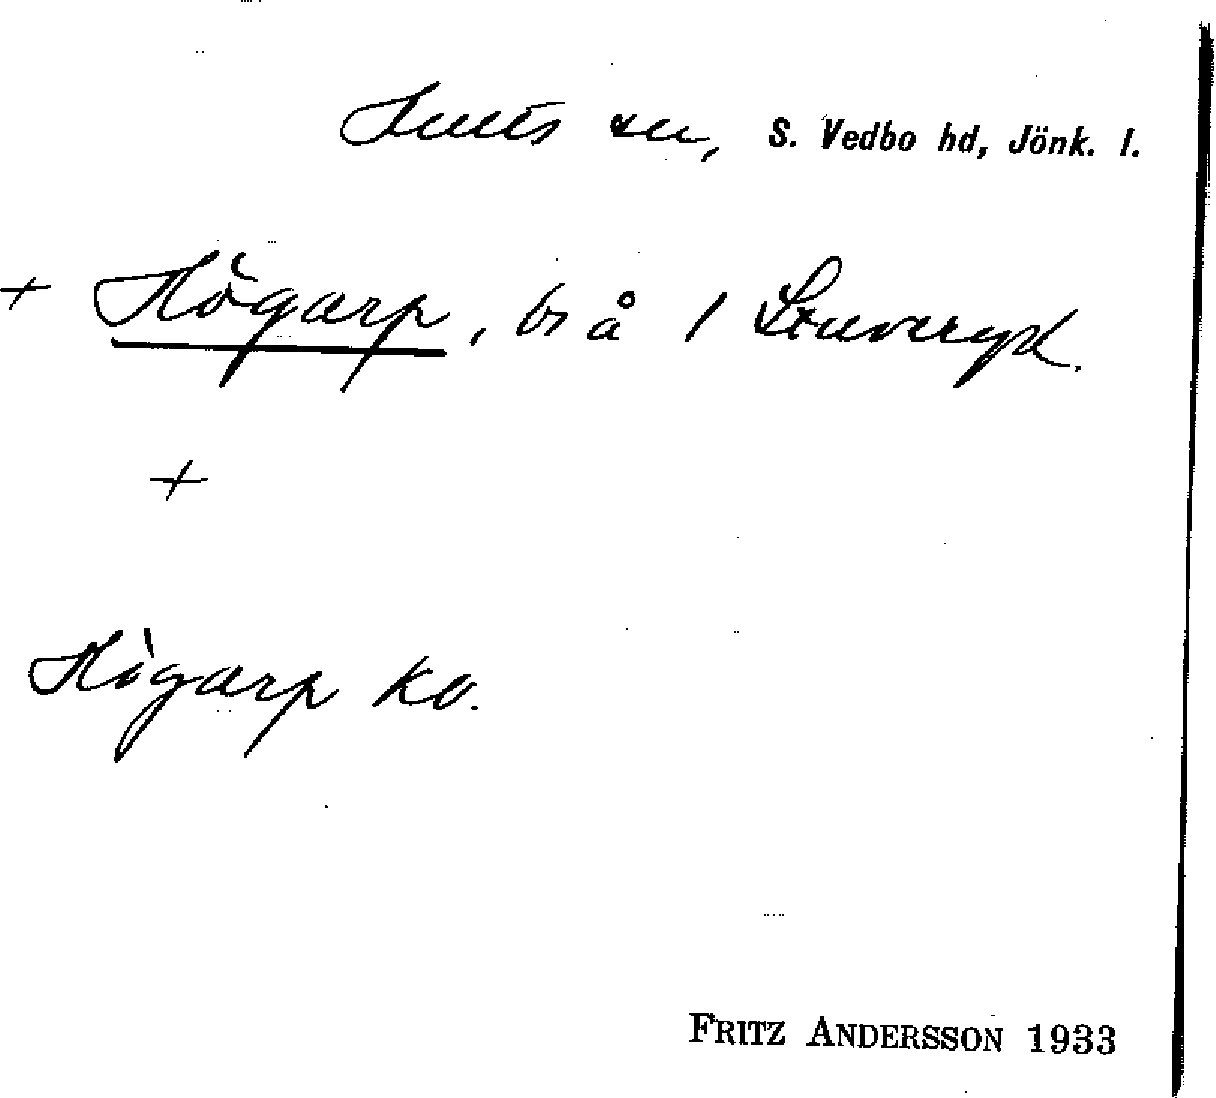 Hults sn, S. Vedbo hd, Jönk. l.
+ Högarp, bs å 1 Stuveryd.
+
Högarp ko.
FRITZ ANDERSSON 1933